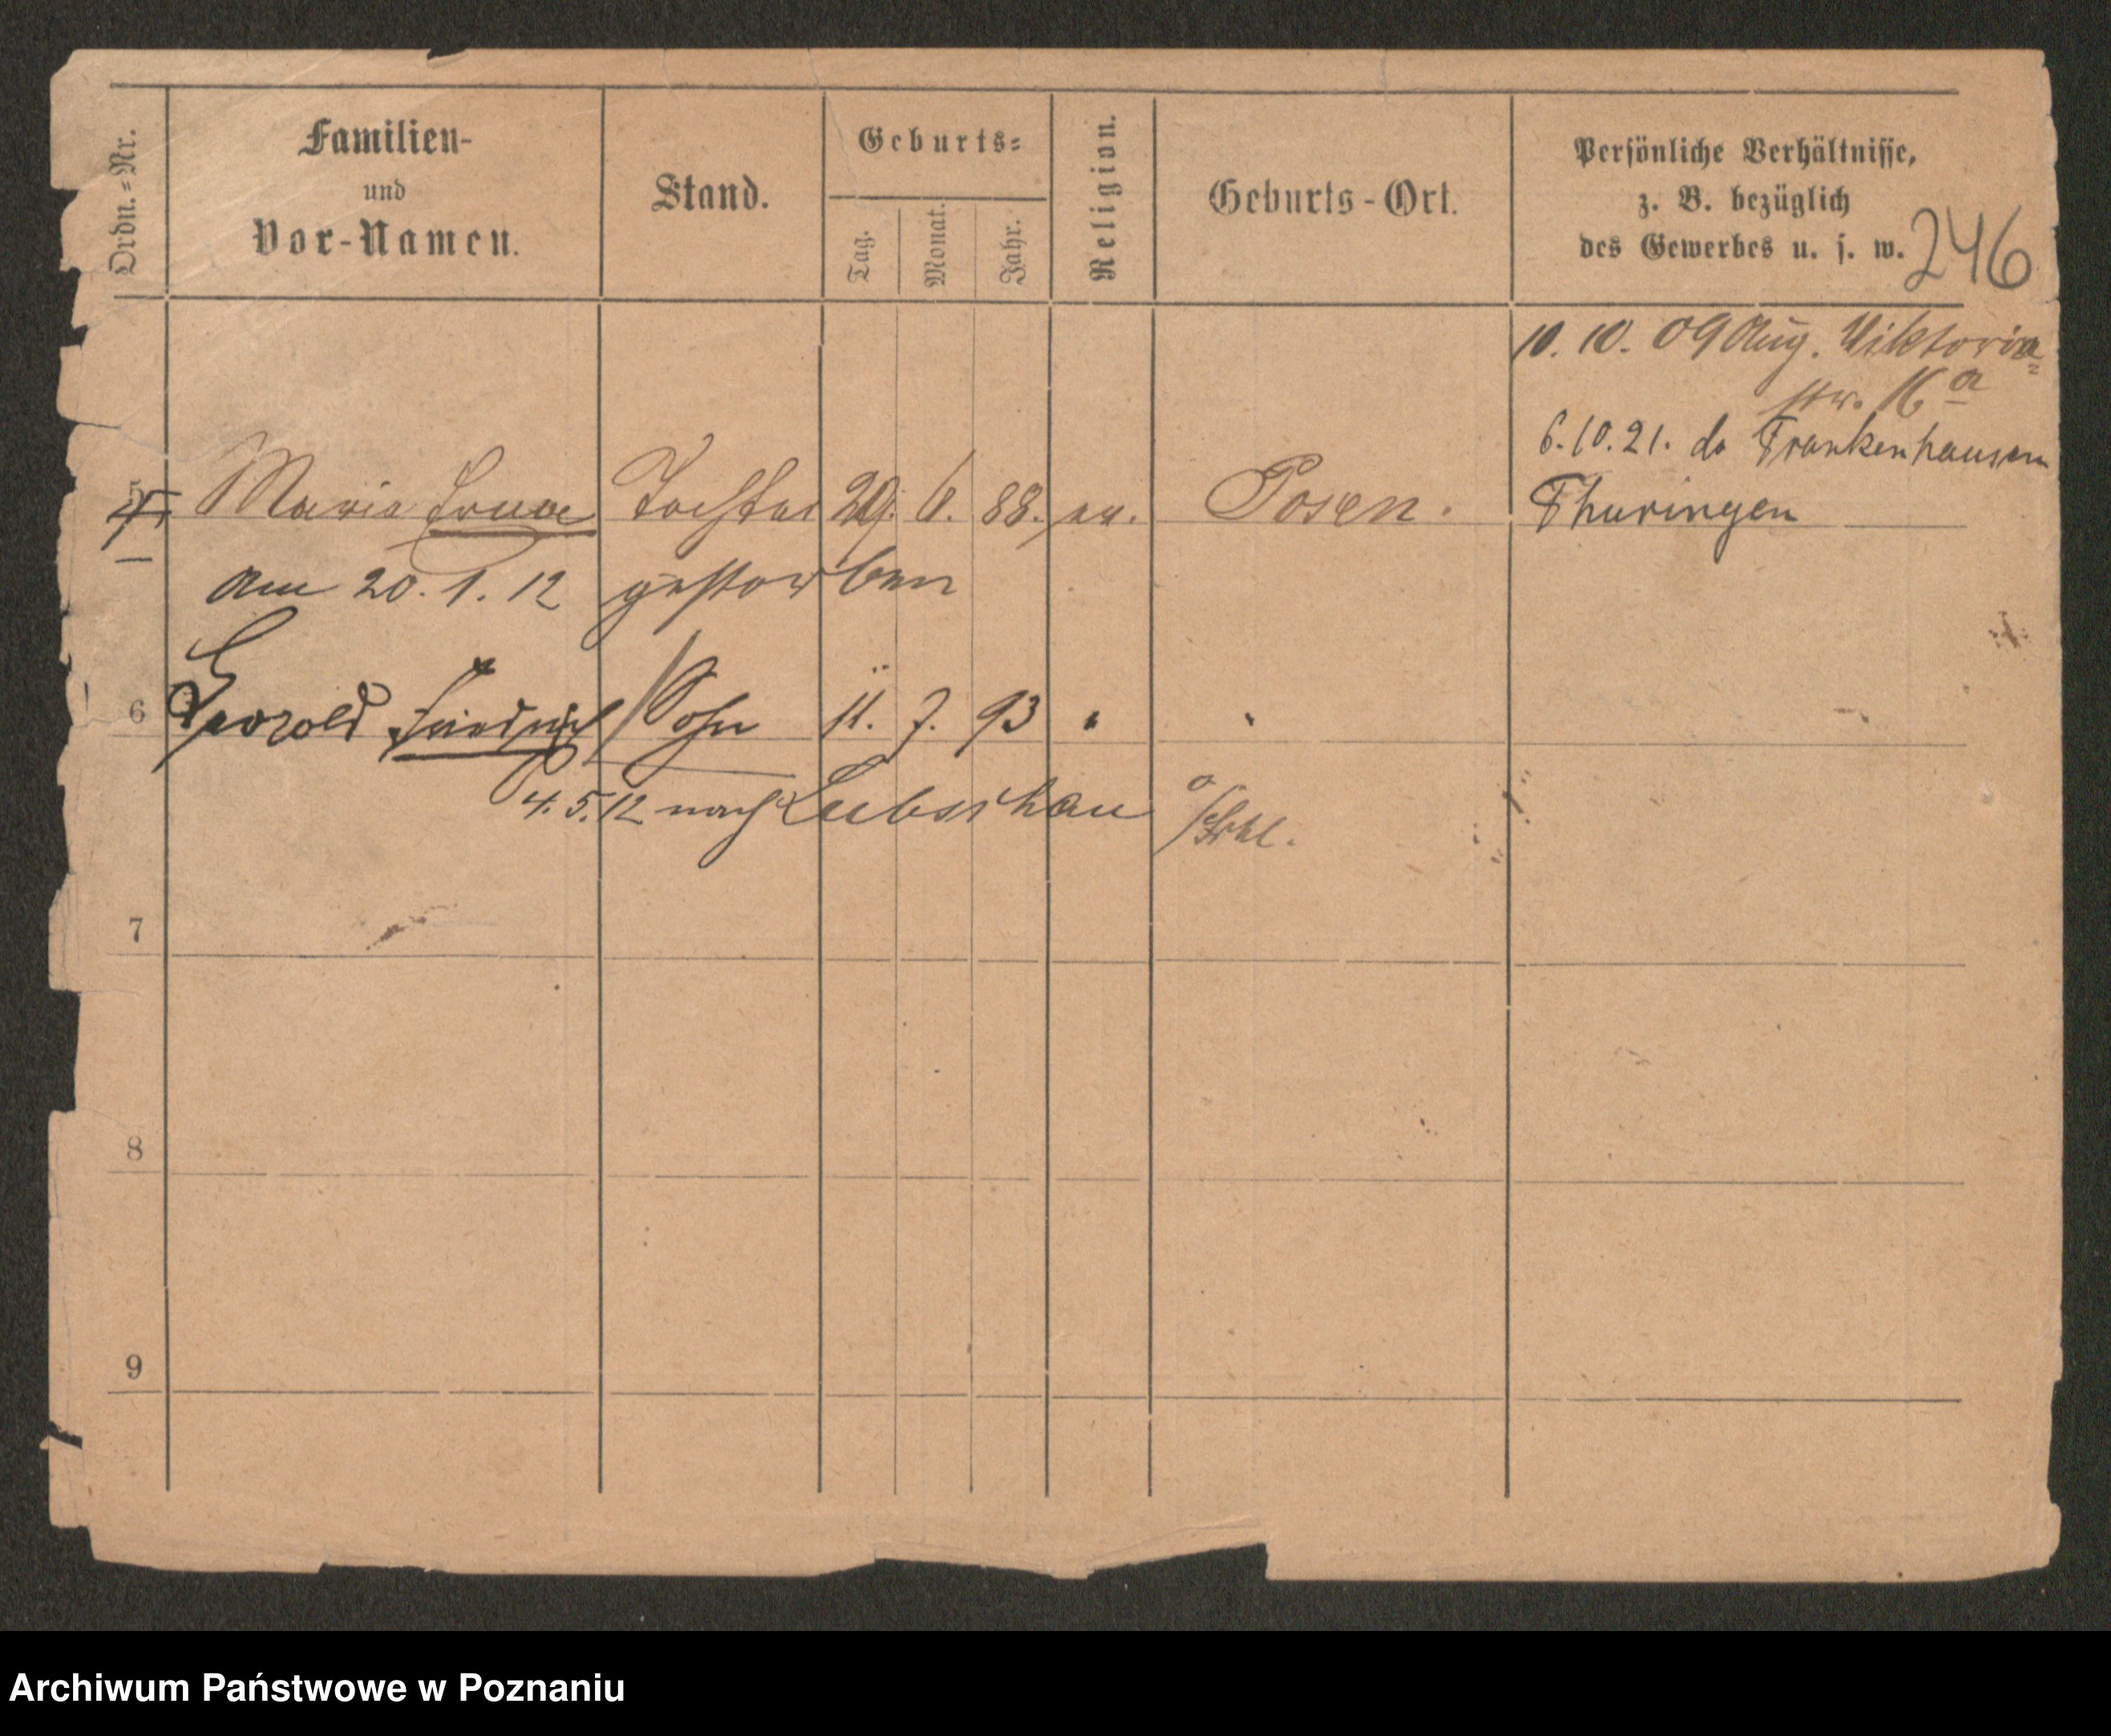 Ordn.-Nr.
Familien-
und
Vor-Namen.
Stand.
Geburts-
Tag.
Monat.
Jahr.
Religion.
Geburts-Ort.
Persönliche Verhältnisse,
z. B. bezüglich
des Gewerbes u. s. w.
246
10. 10. 09 Aug. Viktoria
str. 16 a
6.10.21. do Frankenhausen
5 Maria Tochter 29. 6. 88. ev. Posen. Thuringen
am 20. 1. 12 gestorben
6 Friedrich Sohn 11. 7. 93 "
4. 5. 12 nach Lubsschau
7
8
9
Archiwum Państwowe w Poznaniu